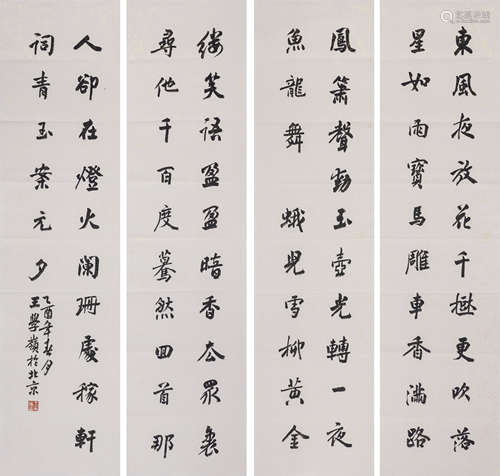 東風夜放花千樹更吹落
星如雨寶馬雕車香滿路
鳳簫聲動玉壺光轉一夜
魚龍舞 蛾兒雪柳黃金
縷笑語盈盈暗香去眾裏
尋他千百度驀然回首那
人卻在燈火闌珊處稼軒
詞青玉案元夕
乙酉年春月
王學嶺於北京